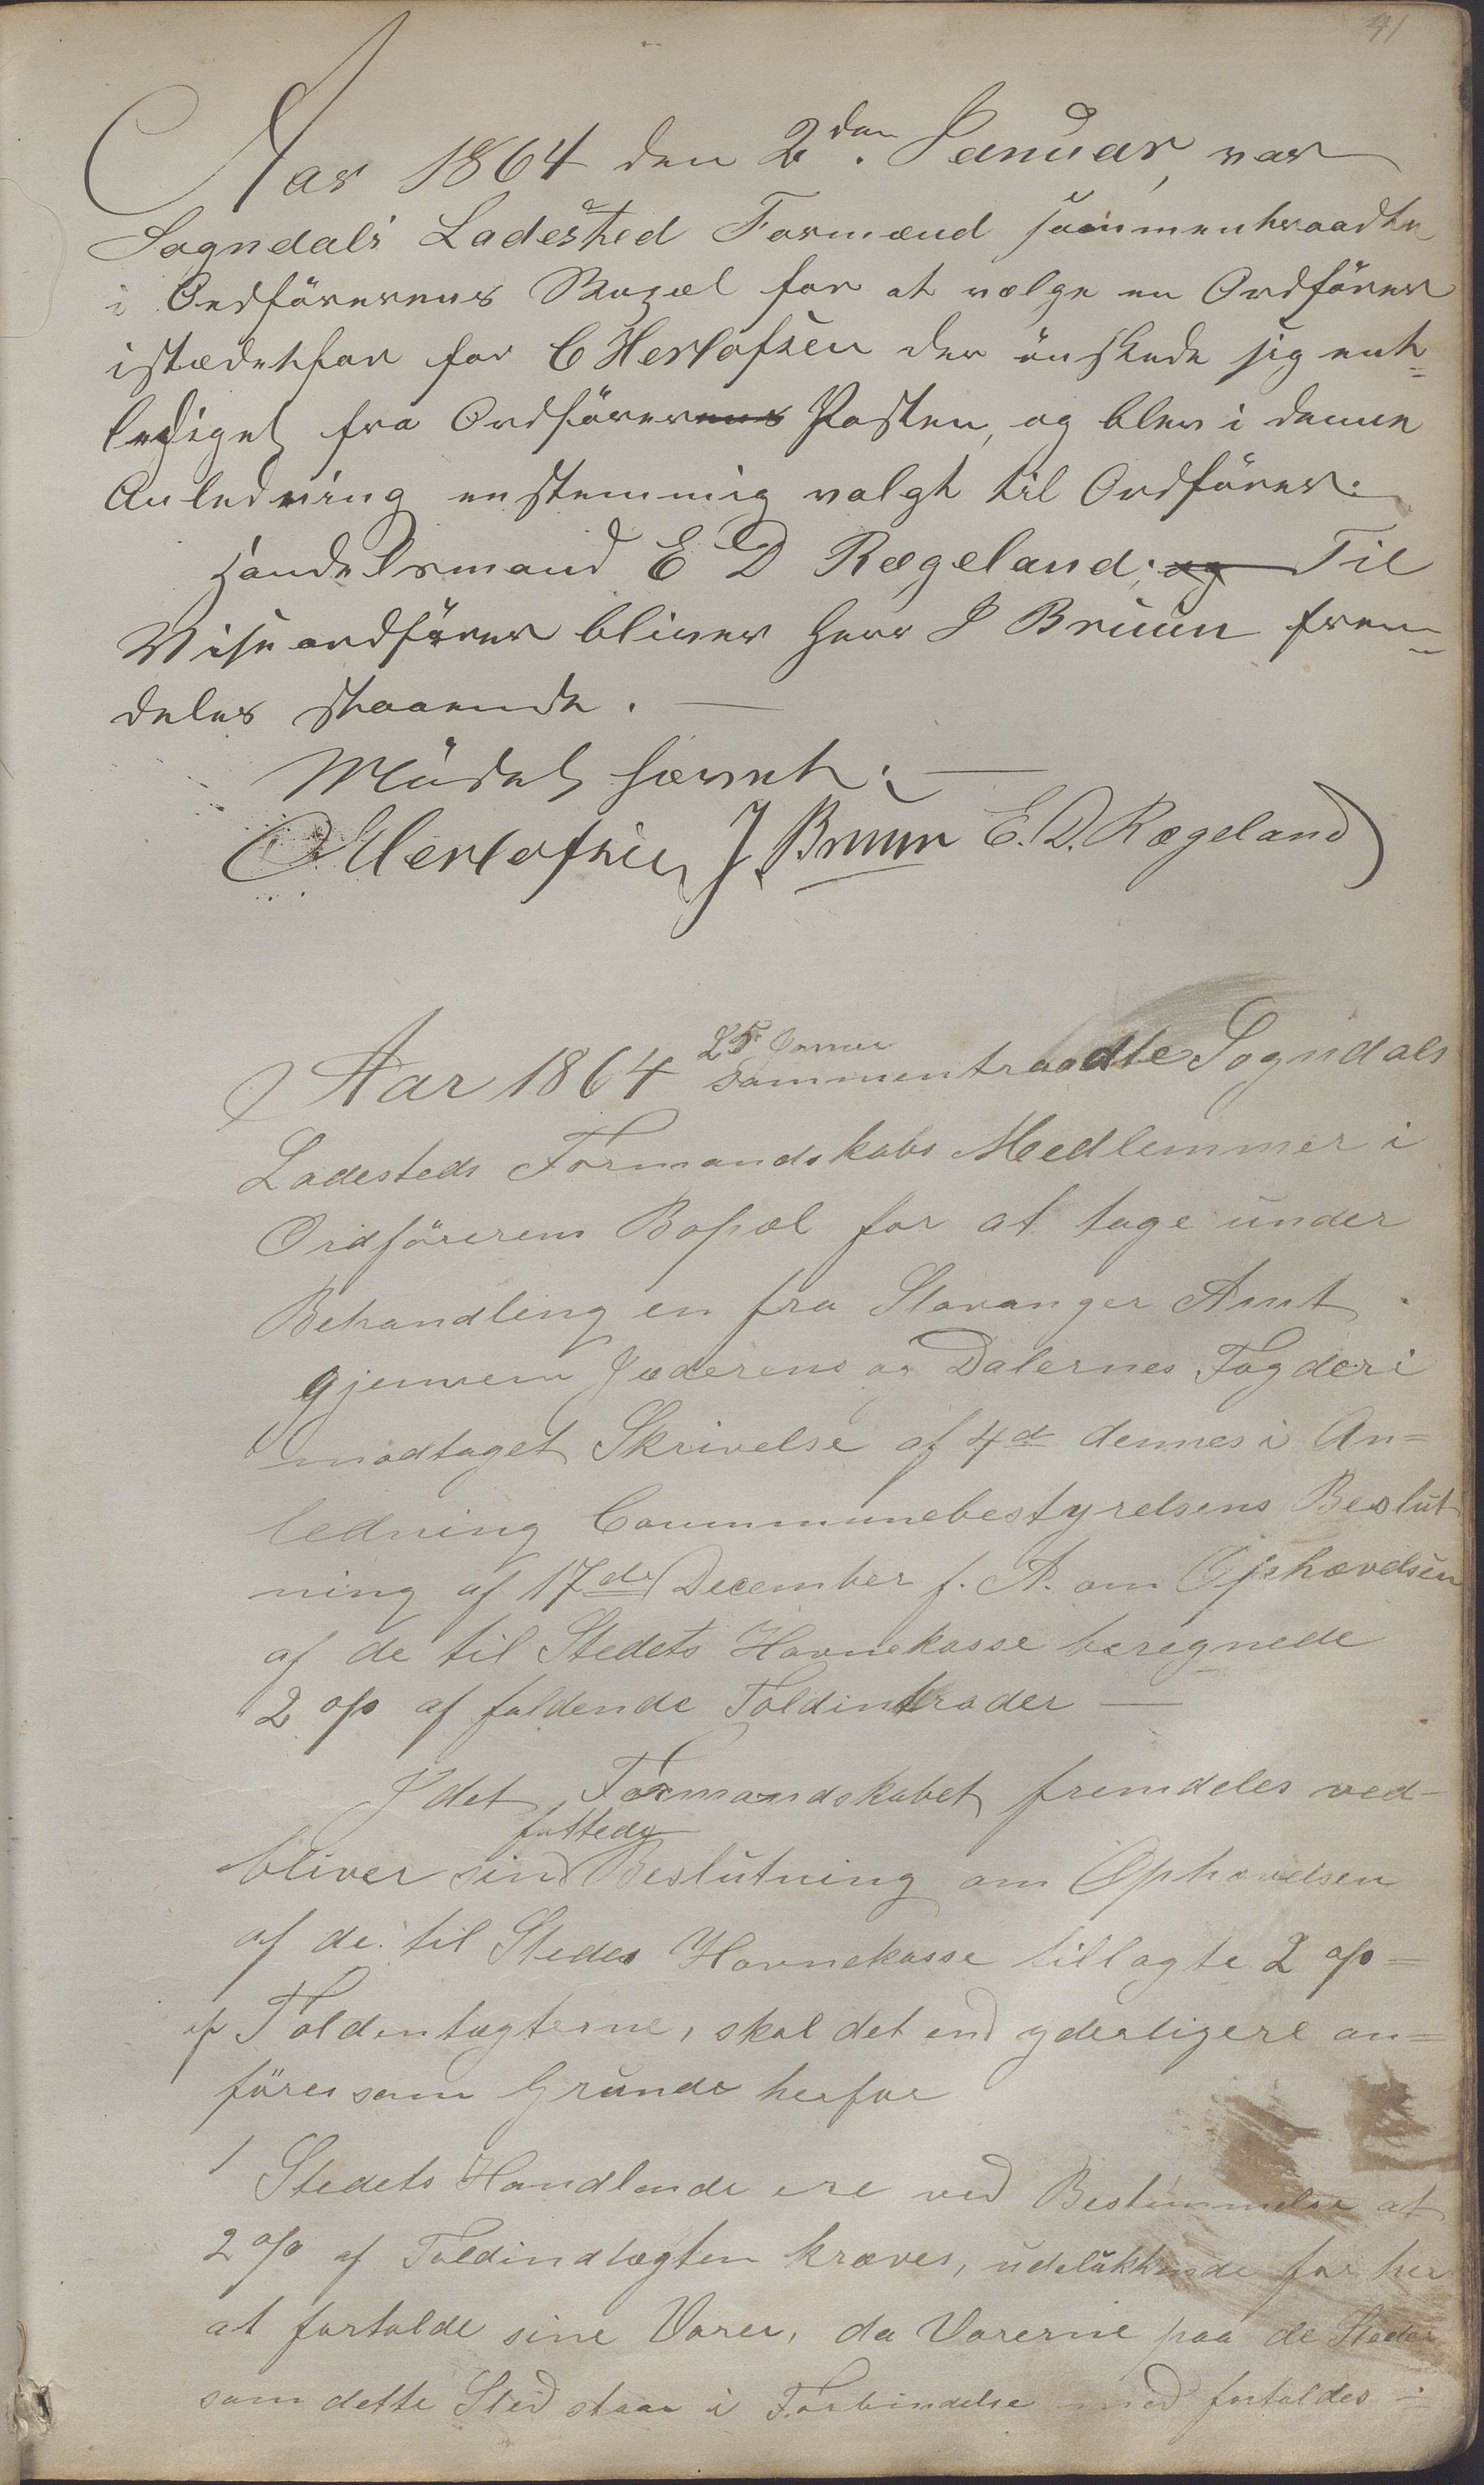 41
Aar 1864 den 2den. Januar, var
Sogndals Ladested Formænd sammentraadte
i Ordförerens Bopæl for at vælge en Ordförer
istædetfor for C Herlofsen der önskede sig ent=
lediget fra Ordförerens Posten, og blev i denne
Anledning enstemmig valgt til Ordförer.
Handelsmand E D Rægeland; og Til
Viseordförer bliver Herr J Bruun frem=
deles staaende. —
Mödet hævet. —
CHerlofsen J. Bruun E. D. Rægeland
25 Januar
Aar 1864 sammentraadte Sogndals
Ladesteds Formandskabs Medlemmer i
Ordförerens Bopæl for at tage under
Behandling en fra Stavanger Amt
gjennem Jæderens og Dalernes Fogderi
modtaget Skrivelse af 4de dennes i An=
ledning Communebestyrelsens Beslut
ning af 17de December f. A. om Ophævelsen
af de til Stedets Havnekasse beregnede
2 o/o af faldende Toldintrader —
Idet Formandskabet fremdeles ved-
fattede
bliver sin Beslutning om Ophævelsen
af de til Stedes Havnekasse tillagte 2 o/o =
af Toldintægterne, skal det end yderligere an=
föres som Grunde herfor
1 Stedets Handlende ere ved Bestemmelse at
2 o/o af Toldindtægten kræves, udelukkende for her
at fortolde sine Varer, da Varerne paa de Steder
som dette Sted staar i Forbindelse med fortoldes =